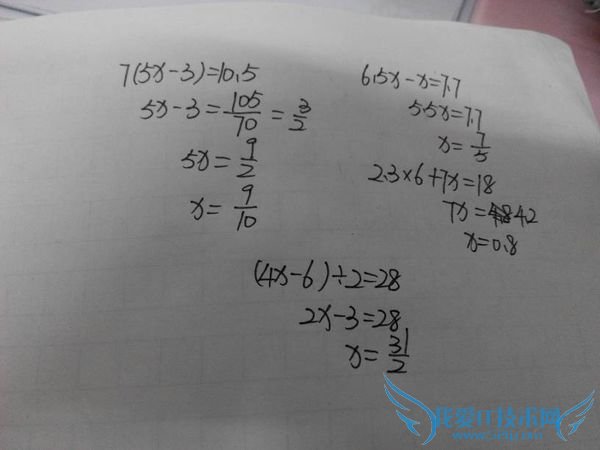 7(5x-3)=10.5
5x-3=105/70=3/2
5x=9/2
x=9/10
6.5x-x=7.7
5.5x=7.7
x=7/5
2.3×6+7x=18
7x=4.2
x=0.8
(4x-6)÷2=28
2x-3=28
x=31/2
我爱IT技术网